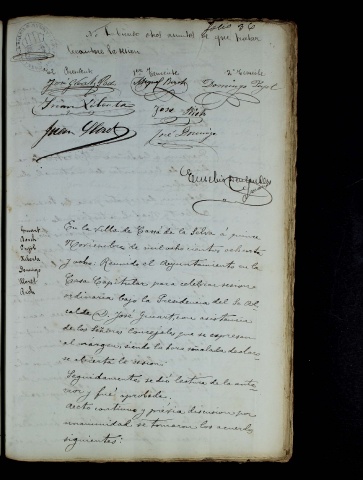 Folio 26
No habiendo otros asuntos de que tratar
El Presidente 1er Teniente 2º Teniente
Domingo Pujol
José
Juan Lloret José Domingo
Bosch
Pujol
Domingo
Lloret
En la Villa de Cassá de la Selva á quince
Noviembre de mil ochocientos ochenta
y ocho. Reunido el Ayuntamiento en la
Casa Capitular para celebrar sesion
ordinaria bajo la Presidencia del Sr Al
calde D. José con asistencia
de los Señores Concejales que se expresan
al margen, siendo la hora señalada declaró
se abierta la sesion.
Seguidamente se dió lectura de la ante
rior y fué aprobada.
Acto continuo y prévia discusion por
unanimidad se tomaron los acuerdos
siguientes: